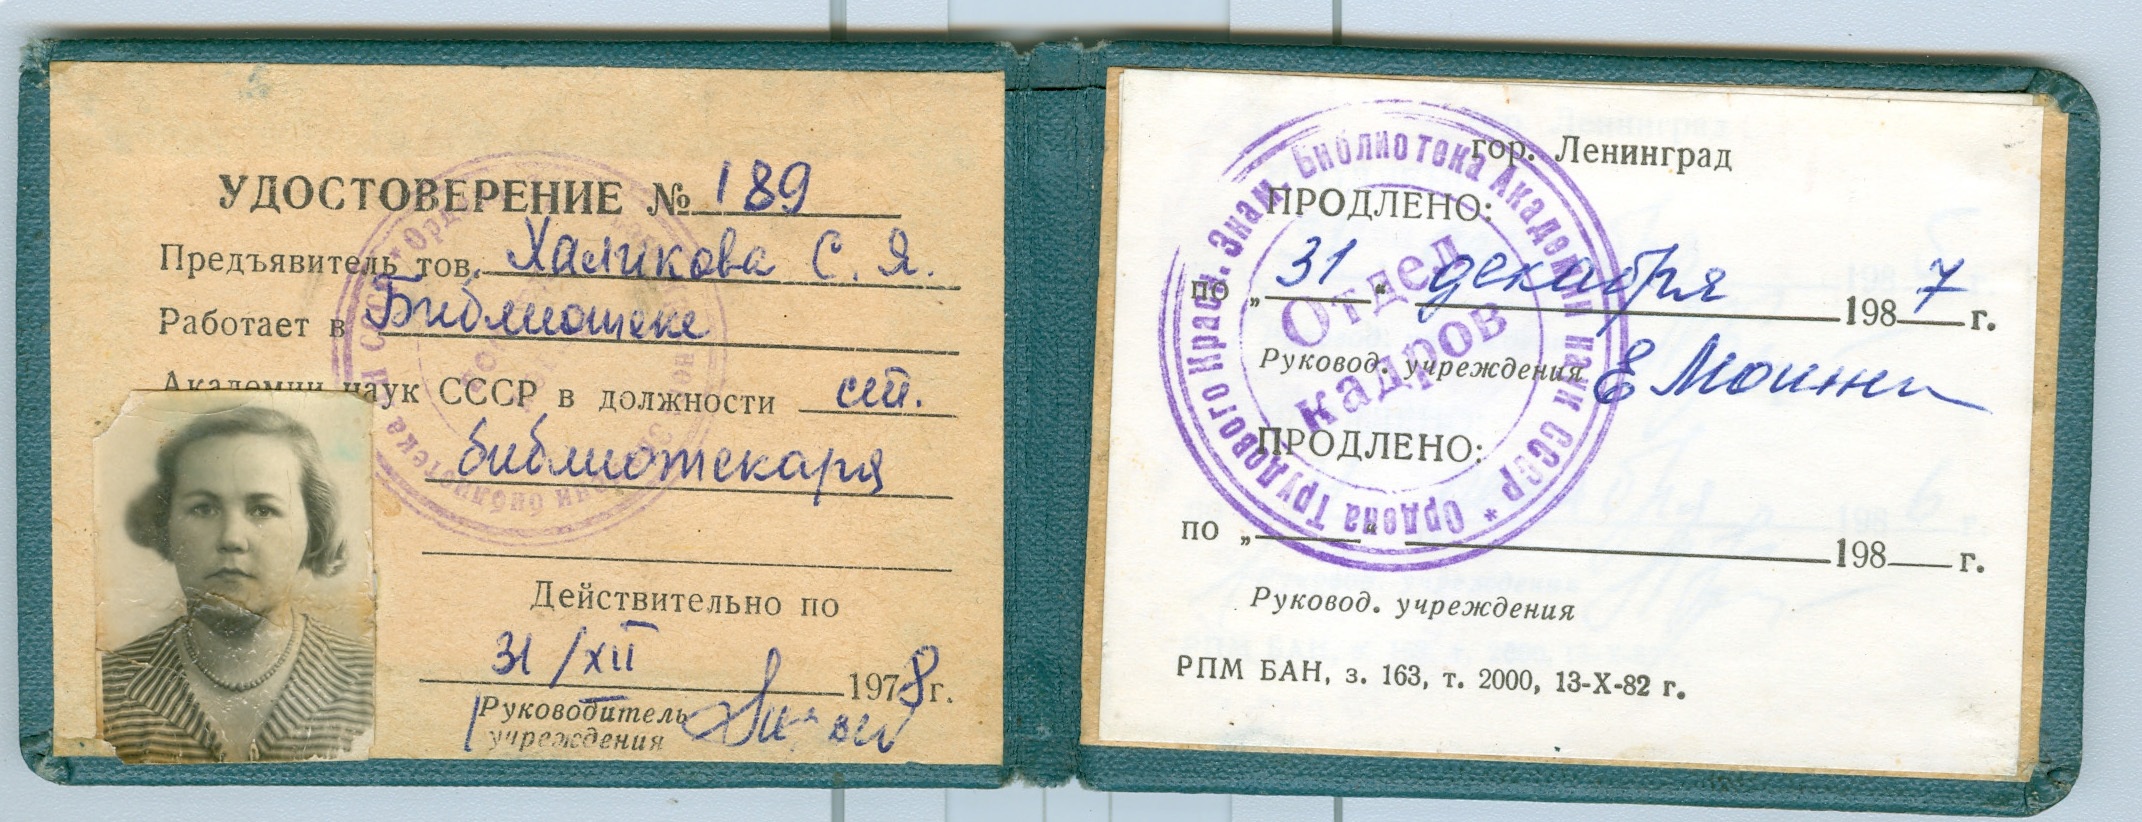 УДОСТОВЕРЕНИЕ № 189
Предъявитель тов. Халикова С. Я.
Работает в Библиотеке
Академии наук СССР в должности
библиотекаря
Действительно по
31/XII 1978 г.
Руководитель
учреждения
гор. Ленинград
ПРОДЛЕНО:
по „31“ декабря 1987 г.
Руковод. учреждения
ПРОДЛЕНО:
по „ “ 198 г.
Руковод. учреждения
РПМ БАН, з. 163, т. 2000, 13-X-82 г.
Ордена Трудового Красн. Знам. Библиотека Академии наук СССР *
Отдел
кадров